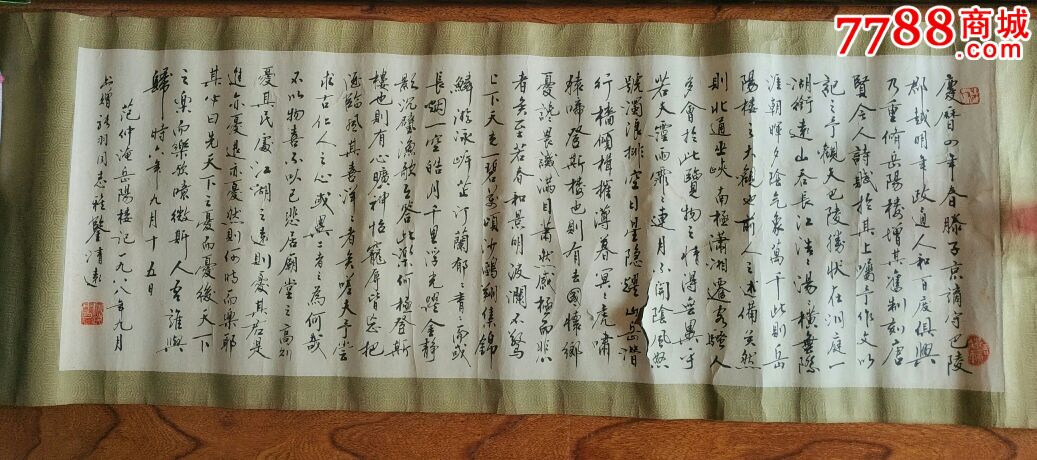 7788商城
7788.com
慶曆四年春滕子京謫守巴陵
郡越明年政通人和百廢俱興
乃重修岳陽樓增其舊制刻唐
賢今人詩賦於其上屬予作文以
記之予觀夫巴陵勝狀在洞庭一
湖銜遠山吞長江浩浩湯湯橫無際
涯朝暉夕陰氣象萬千此則岳
陽樓之大觀也前人之述備矣然
則北通巫峽南極瀟湘遷客騷人
多會於此覽物之情得無異乎
若夫霪雨霏霏連月不開陰風怒
號濁浪排空日星隱耀山岳潛
行檣傾楫摧薄暮冥冥虎嘯
猿啼登斯樓也則有去國懷鄉
憂讒畏譏滿目蕭然感極而悲
者矣至若春和景明波瀾不驚
上下天光一碧萬頃沙鷗翔集錦
鱗游泳岸芷汀蘭郁郁青青而或
長煙一空皓月千里浮光躍金靜
影沉璧漁歌互答此樂何極登斯
樓也則有心曠神怡寵辱皆忘把
酒臨風其喜洋洋者矣嗟夫予嘗
求古仁人之心或異二者之為何哉
不以物喜不以己悲居廟堂之高則
憂其民處江湖之遠則憂其君是
進亦憂退亦憂然則何時而樂耶
其必曰先天下之憂而憂後天下
之樂而樂歟噫微斯人吾誰與
歸 時六年九月十五日
范仲淹岳陽樓記一九八八年九月
羽同志 鑒